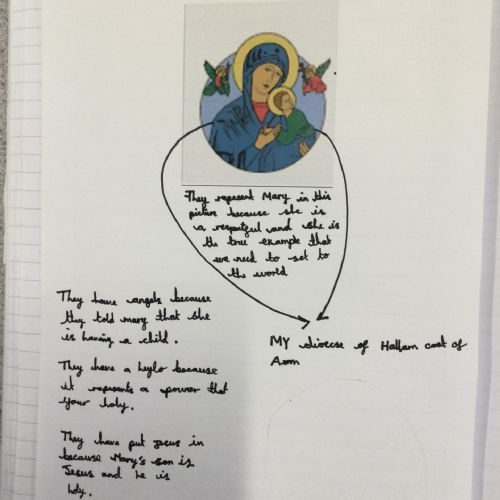 They represent Mary in this
picture because she is
a respectful and she is
the true example that
we need to set to
the world
They have angels because
they told mary that she
is having a child.
They have a heylo because
it represents a power that
your holy.
They have put Jesus in
because Mary's son is
Jesus and he is
holy.
MY diocese of Hallam coat of
Arom